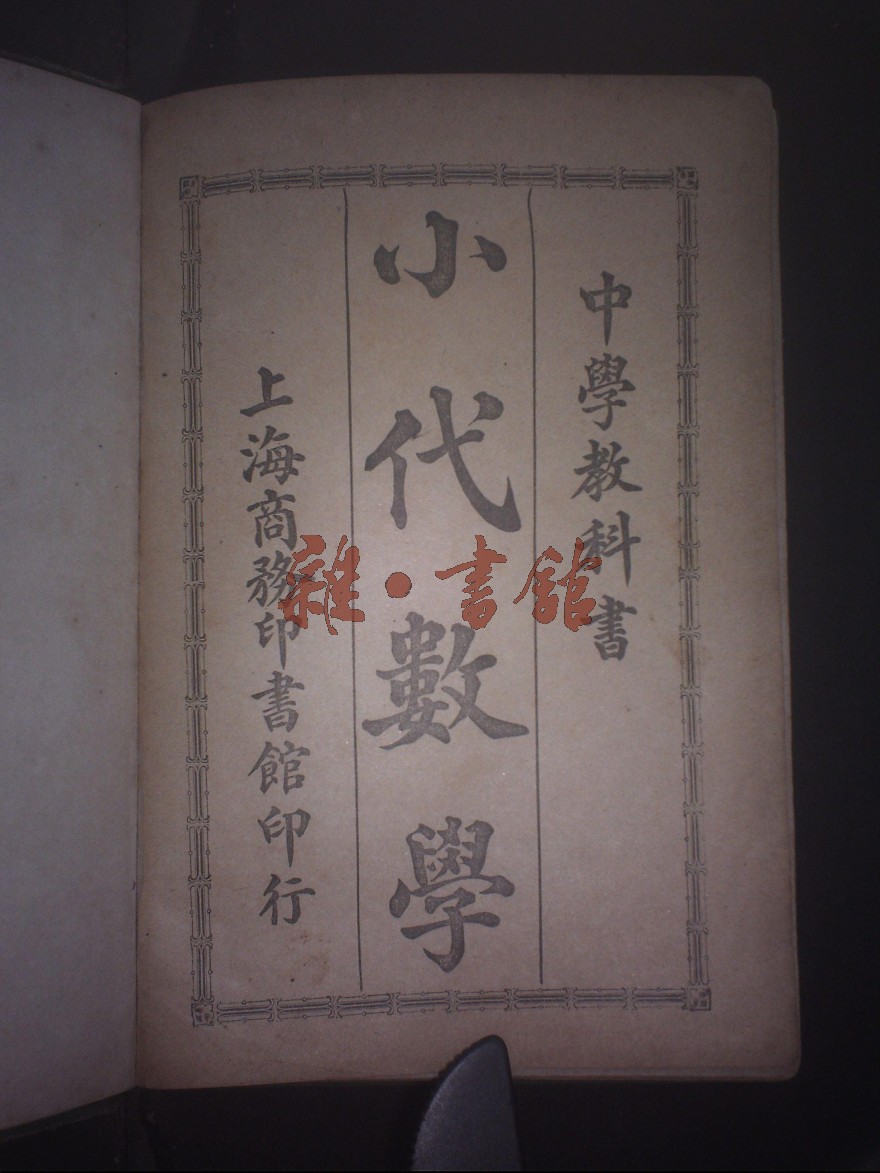 中學教科書
小代數學
上海商務印書館印行
雜·書館